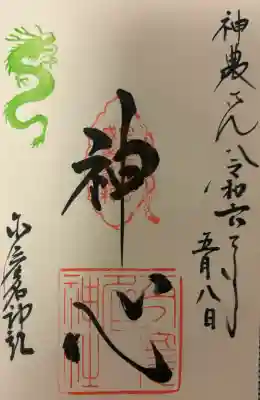 神農さん
令和六とし
五月八日
神心
少彦名神社